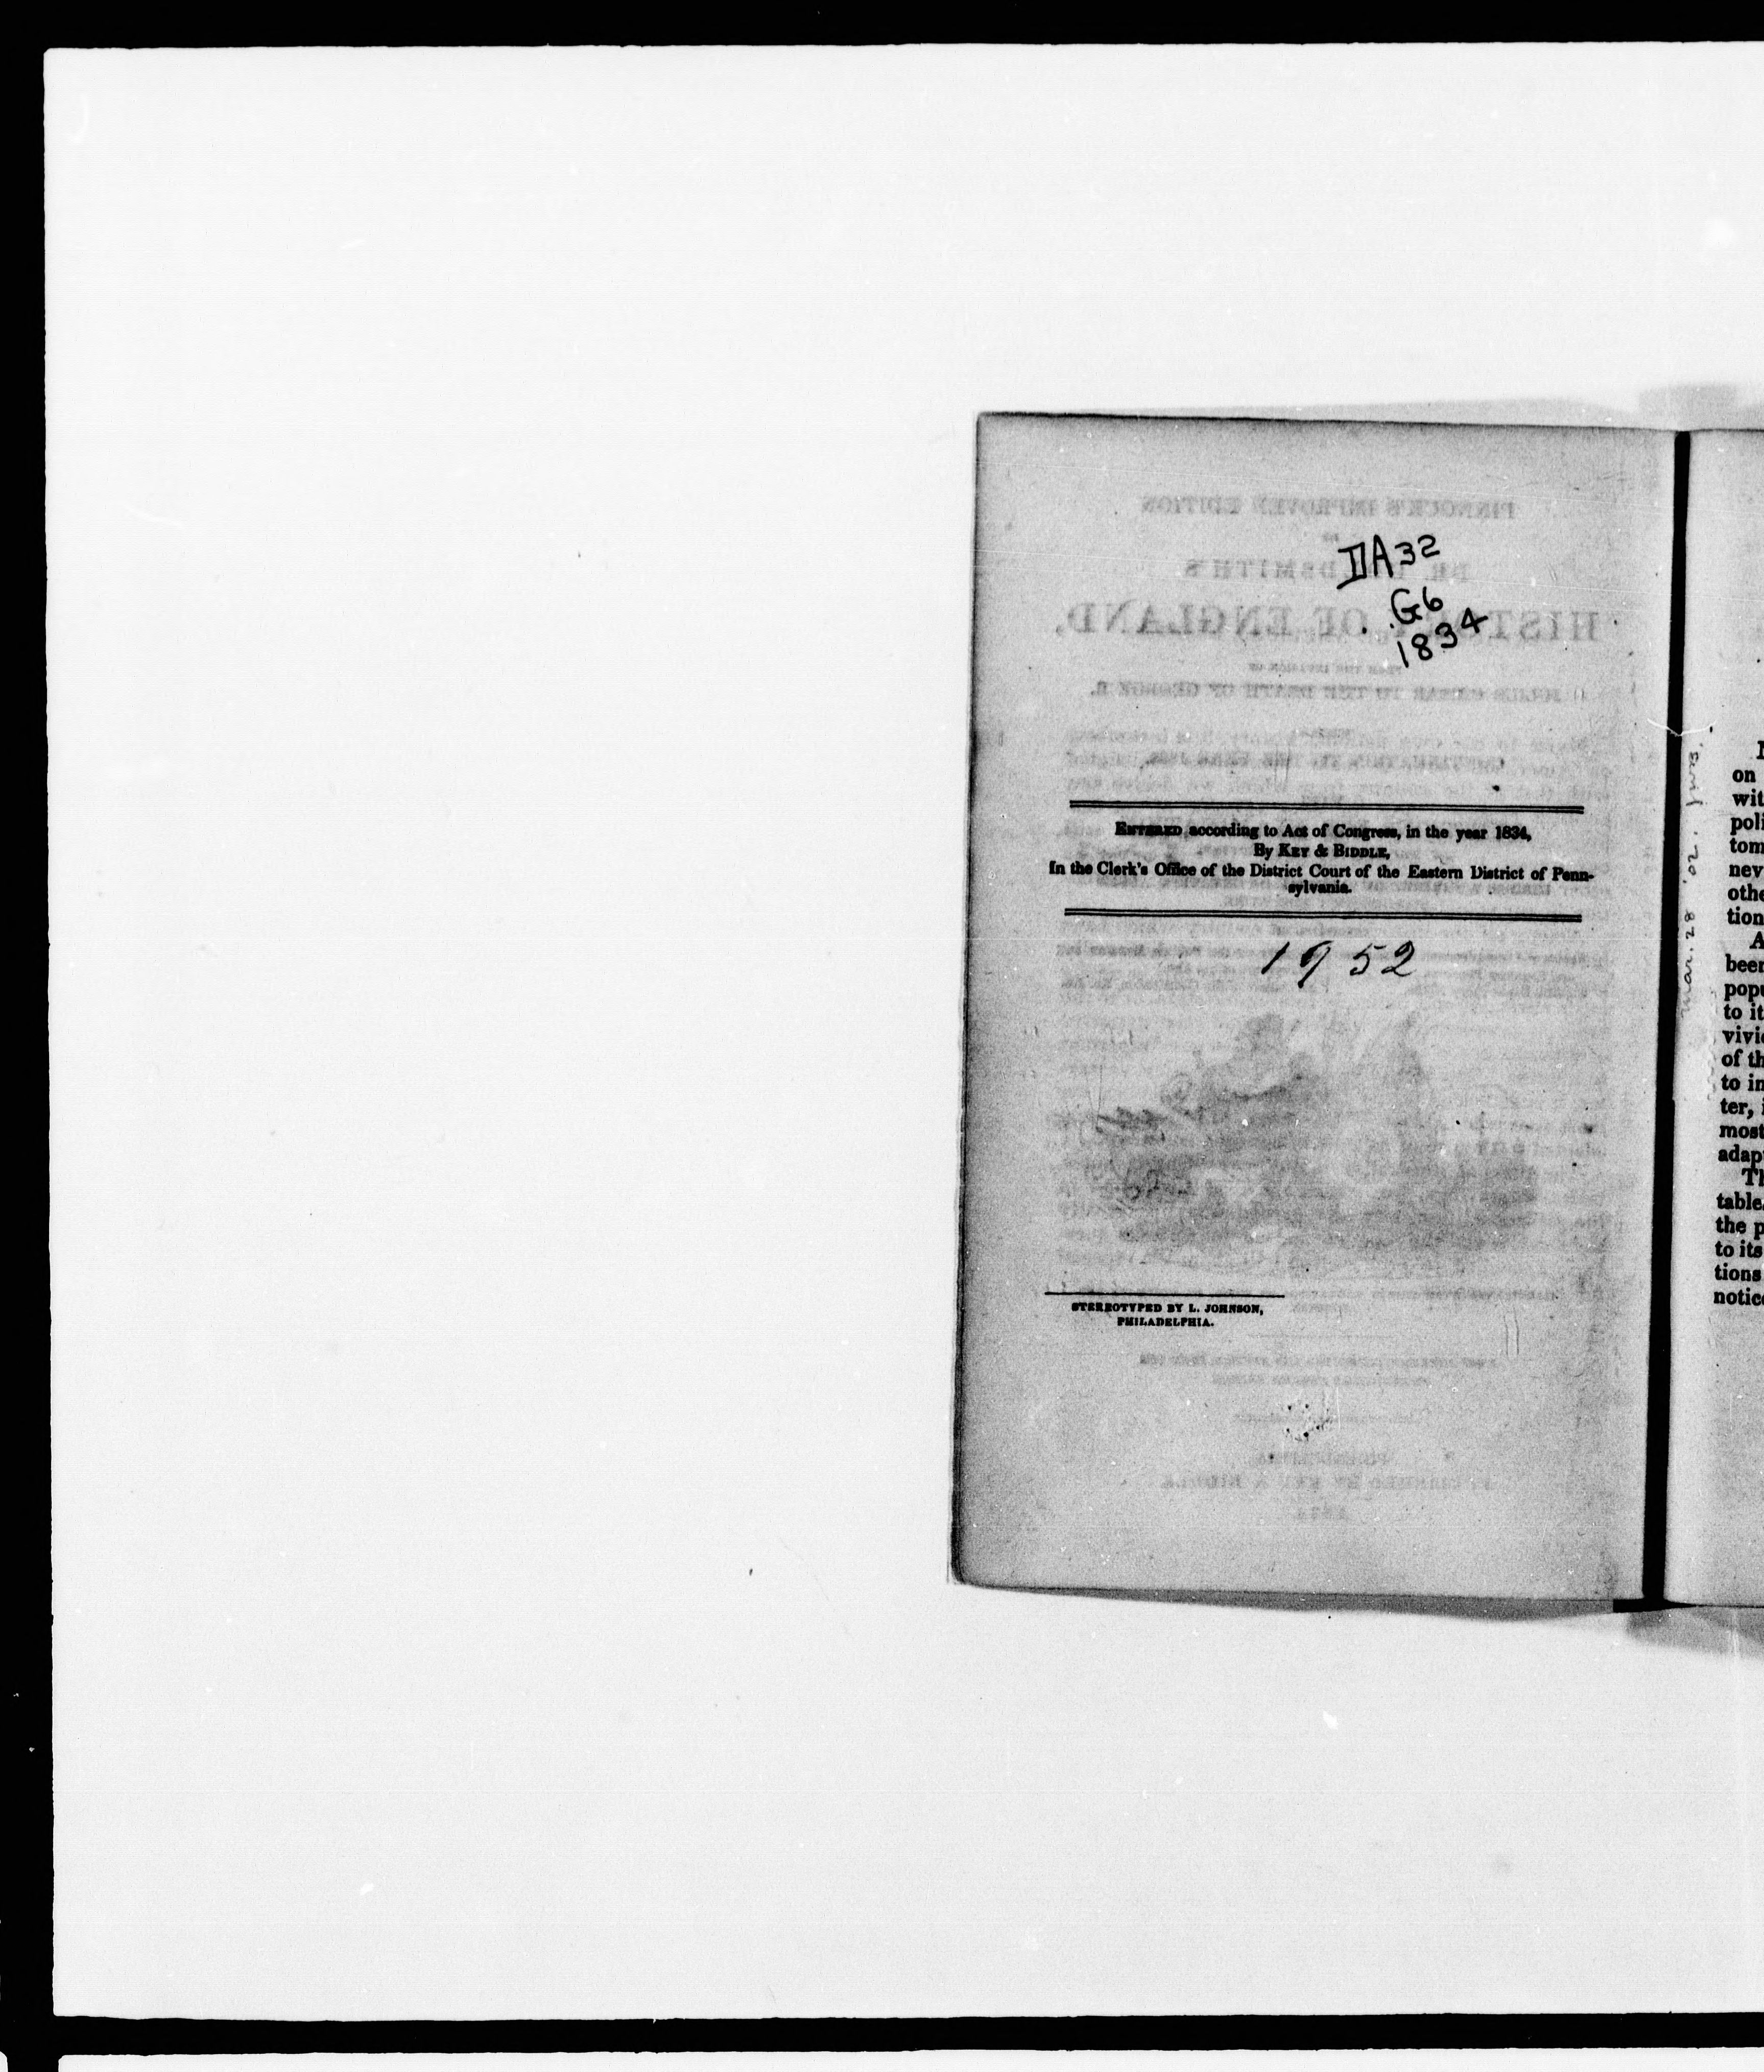 DA32
G6
1834
ENTERED according to Act of Congress, in the year 1834,
By KEY & BIDDLE,
In the Clerk's Office of the District Court of the Eastern District of Penn-
sylvania.
1952
STEREOTYPED BY L. JOHNSON,
PHILADELPHIA.
Mar. 28 '02.
on
wit
poli
tom
nev
othe
tion
A
been
popu
to it
vivi
of th
to in
ter,
most
adap
Th
table
the p
to its
tions
notic